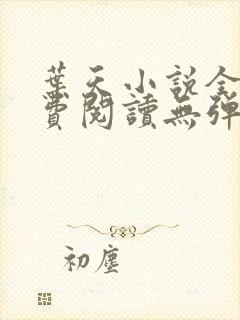 葉天小說全
費閱讀無彈
初塵